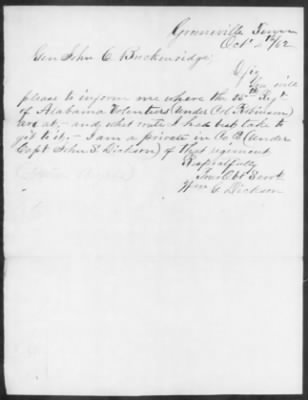 Greenville Tenn
Oct 2th/62
Gen John C Breckenridge,
You will
please to inform me where the Regt
of Alabama Volenters (under Col Robinson)
are at, - and what rout I had best take to
git to it; - I am a private in Co (under
Capt John S. Dickson) of that regiment
Respectfully
Your Obt Servt
Wm G. Dickson